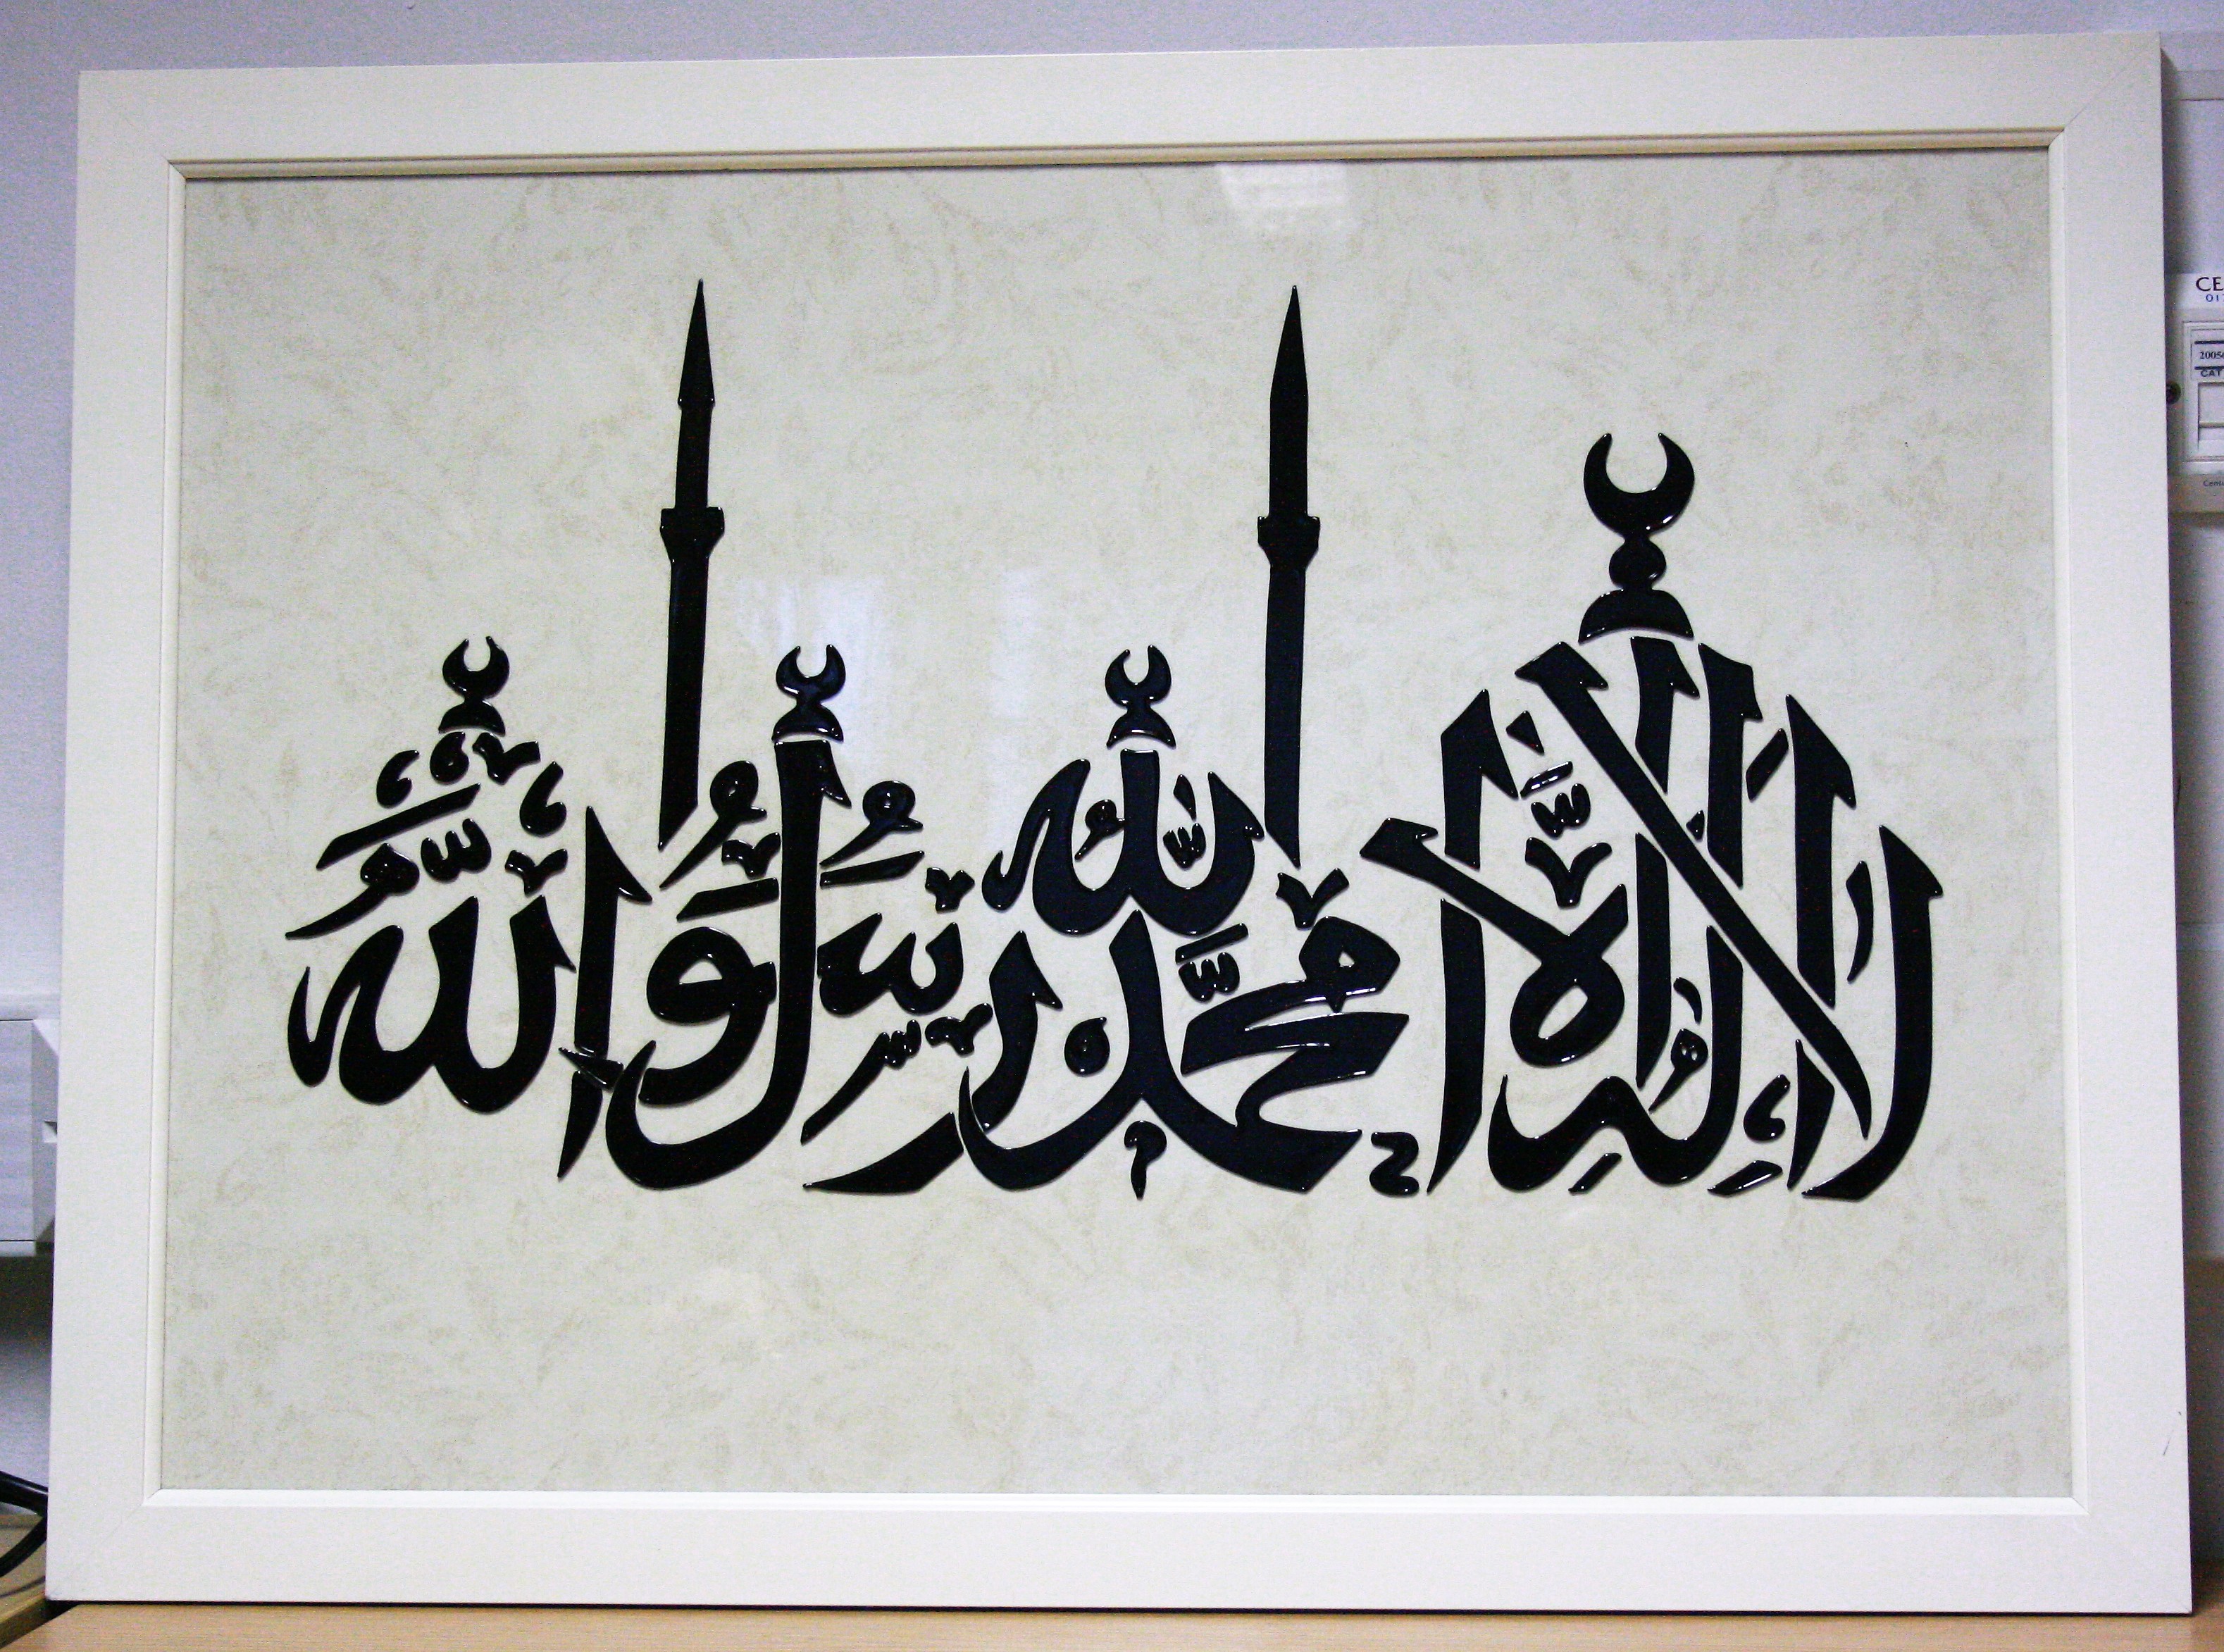 لا إله إلا الله محمد رسول الله
CE
017
2005
CAT
Cente